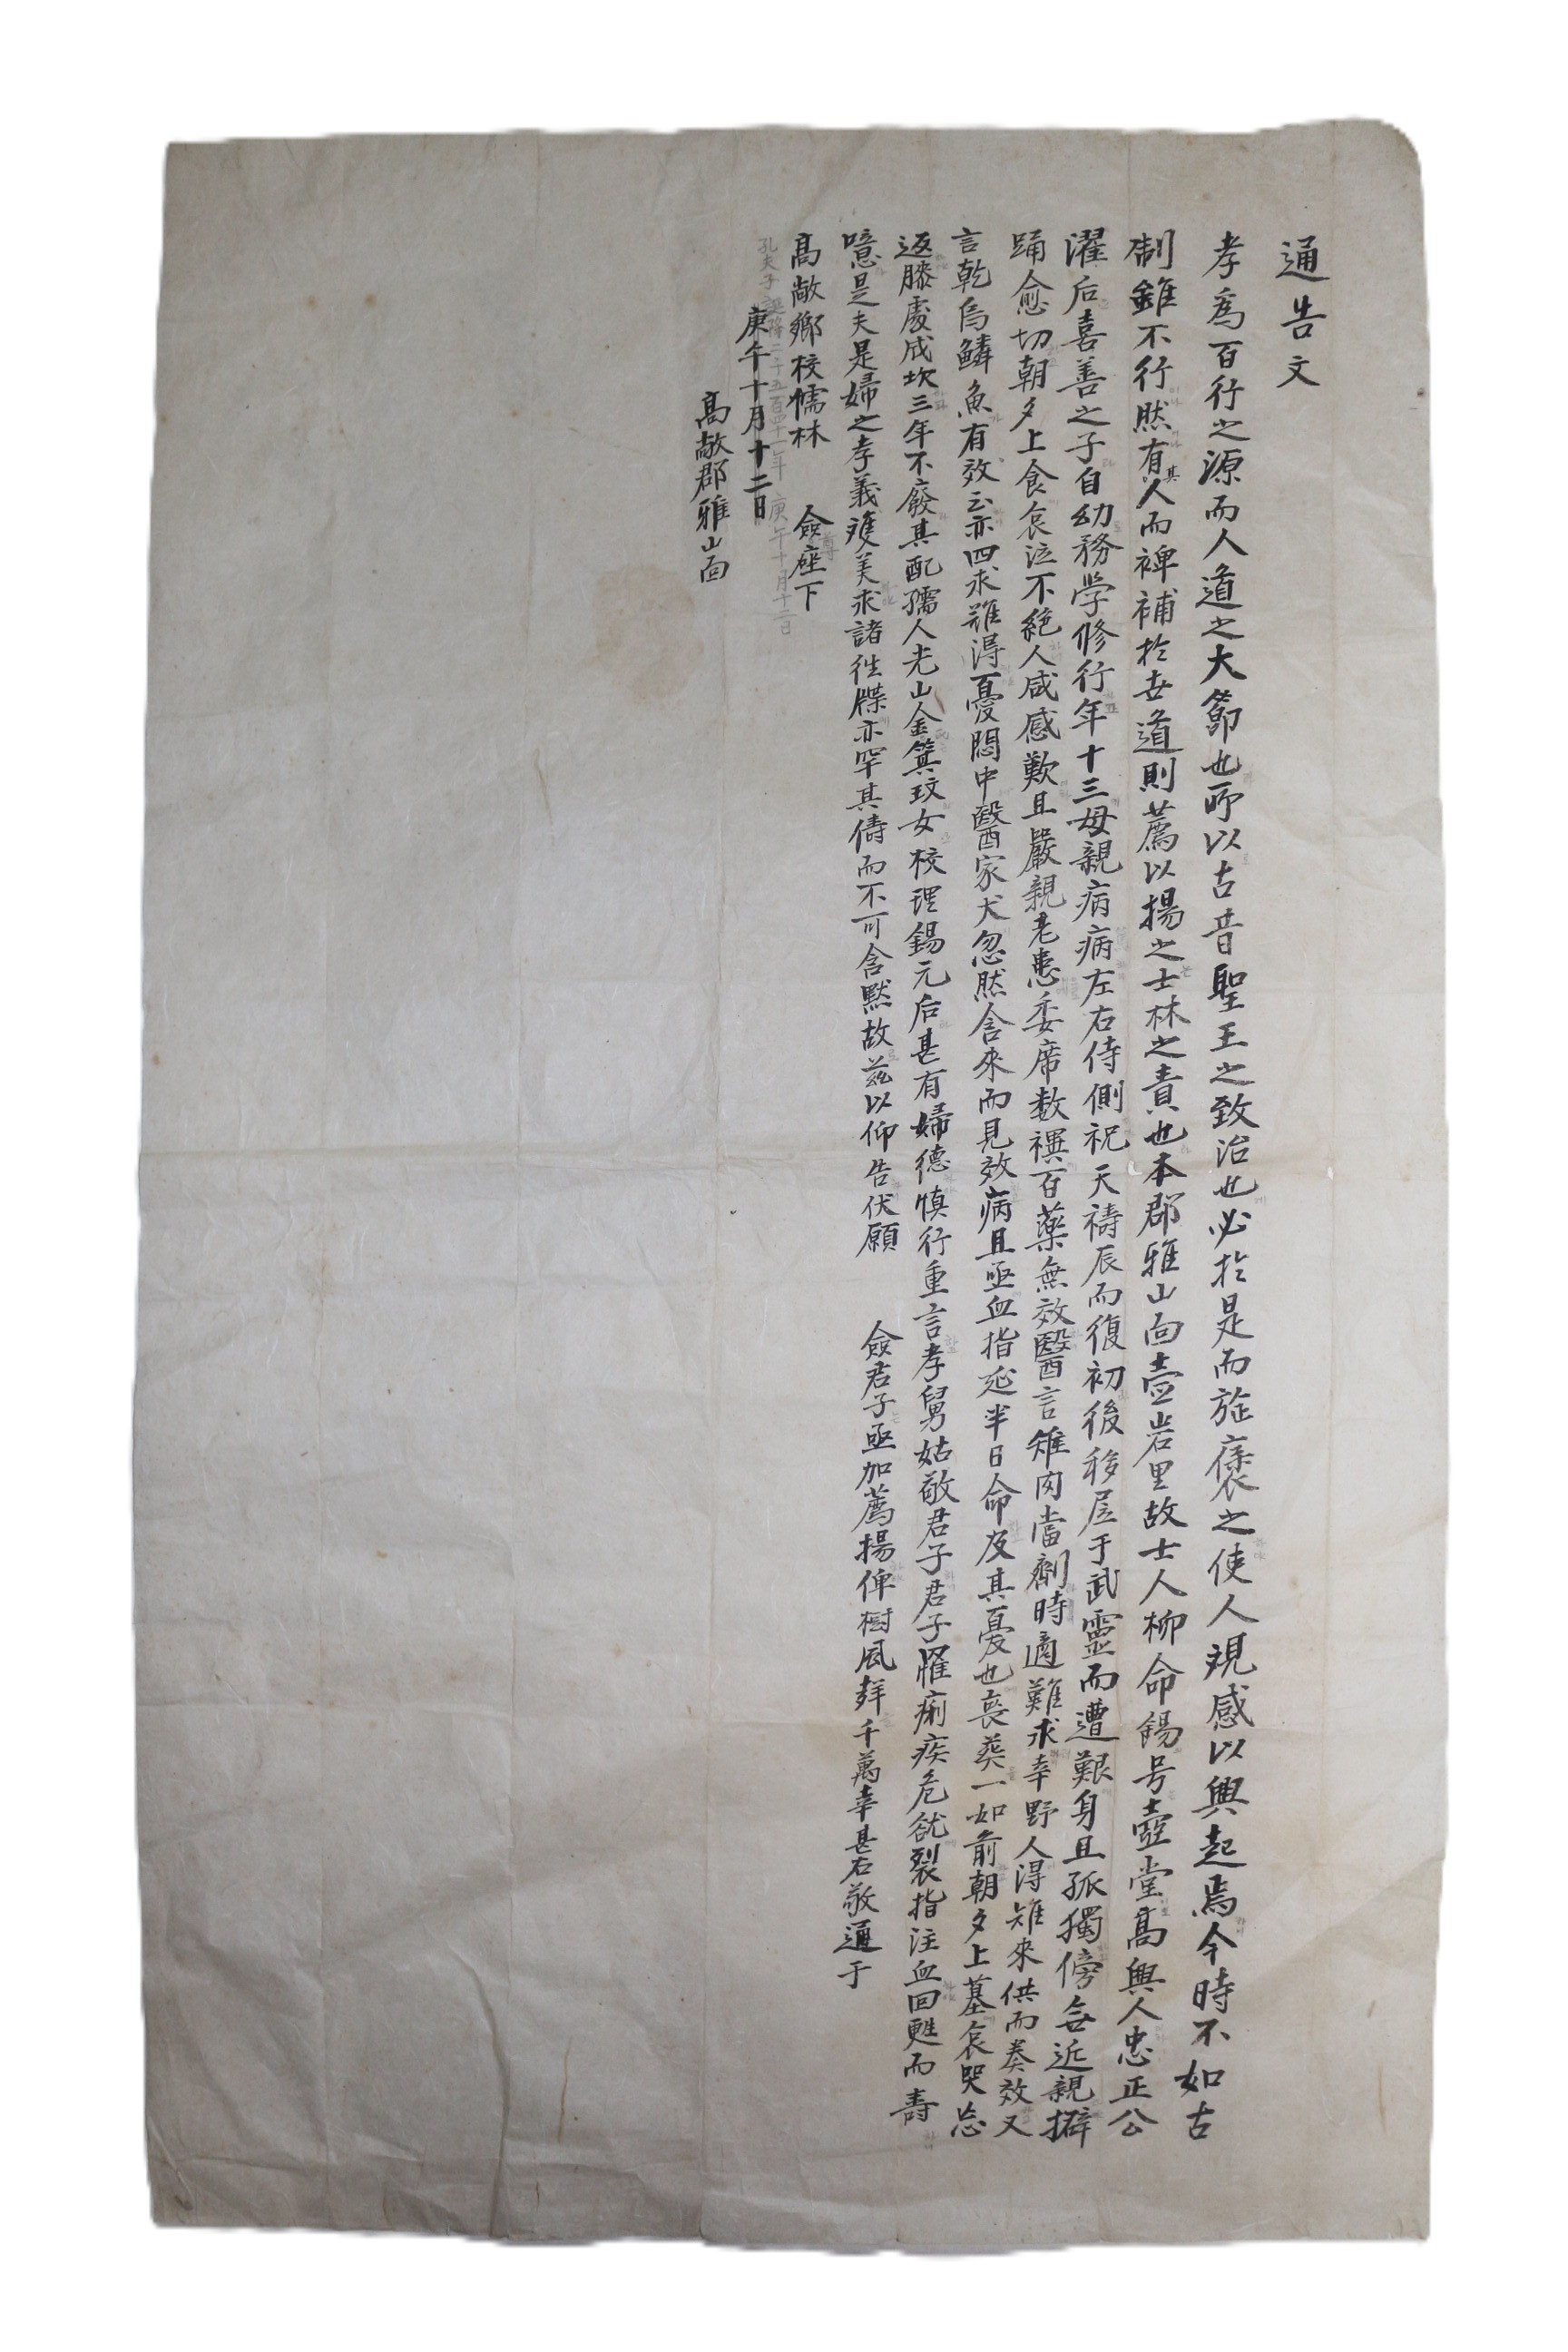 通告文
孝爲百行之源而人道之大節也所以古昔聖王之致治也必於是而旌褒之使人覌感以興起焉今時不如古
制雖不行然有其人而裨補於世道則薦以揚之士林之責也本郡雅山面壺岩里故士人柳命錫号壺堂高興人忠正公
濯后喜善之子自幼務学修行年十三母親病病左右侍側祝天禱辰而復初後移居于武靈而遭艱身且孤獨傍無近親擗
踊愈切朝夕上食哀泣不絶人咸感歎且嚴親老患委席数禩百藥無效醫言雉肉當劑時適難求幸野人得雉來供而奏效又
言乾烏鱗魚有效云亦四求難得憂悶中醫家犬忽然含來而見效病且亟血指延半日命及其憂也喪葬一如前朝夕上墓哀哭忘
返膝處成坎三年不廢其配孺人光山金箕玟女校理錫元后甚有婦德愼行重言孝舅姑敬君子君子罹痢疾危欲裂指注血回甦而壽
噫是夫是婦之孝義雙美求諸徃牒亦罕其儔而不可含默故茲以仰告伏願 僉君子亟加薦揚俾樹風聲千萬幸甚右敬通于
高敞鄉校儒林 僉尊座下
孔夫子誕降二千五百四十一年 庚午十月十二日
庚午十月十二日
高敞郡雅山面